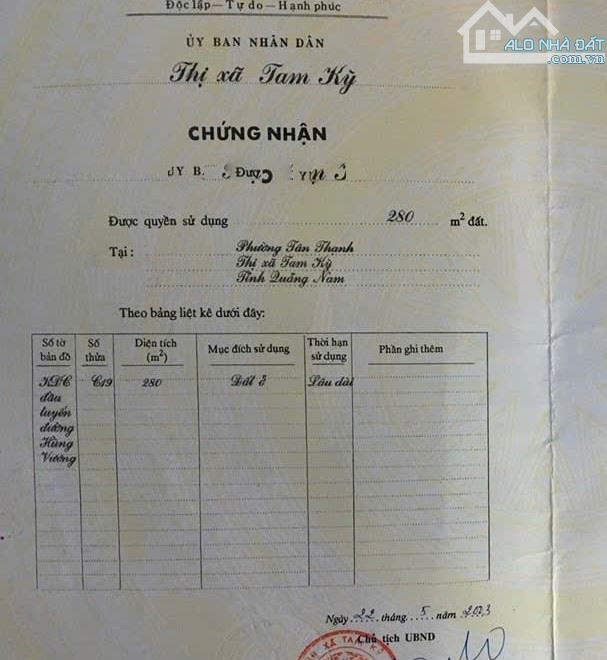 Độc lập — Tự do — Hạnh phúc
ALO NHÀ ĐẤT
.com.vn
ỦY BAN NHÂN DÂN
Thị xã Tam Kỳ
CHỨNG NHẬN
Được quyền sử dụng 280 m² đất.
Tại : Phường Tân Thạnh
Thị xã Tam Kỳ
Tỉnh Quảng Nam
Theo bảng liệt kê dưới đây:
Số tờ bản đồ Số thửa Diện tích (m²) Mục đích sử dụng Thời hạn sử dụng Phần ghi thêm
KDC C19 280 Đất ở Lâu dài
đầu
tuyến
đường
Hùng
Vương
Ngày 22 tháng 5 năm
Chủ tịch UBND
XÃ TAM KỲ